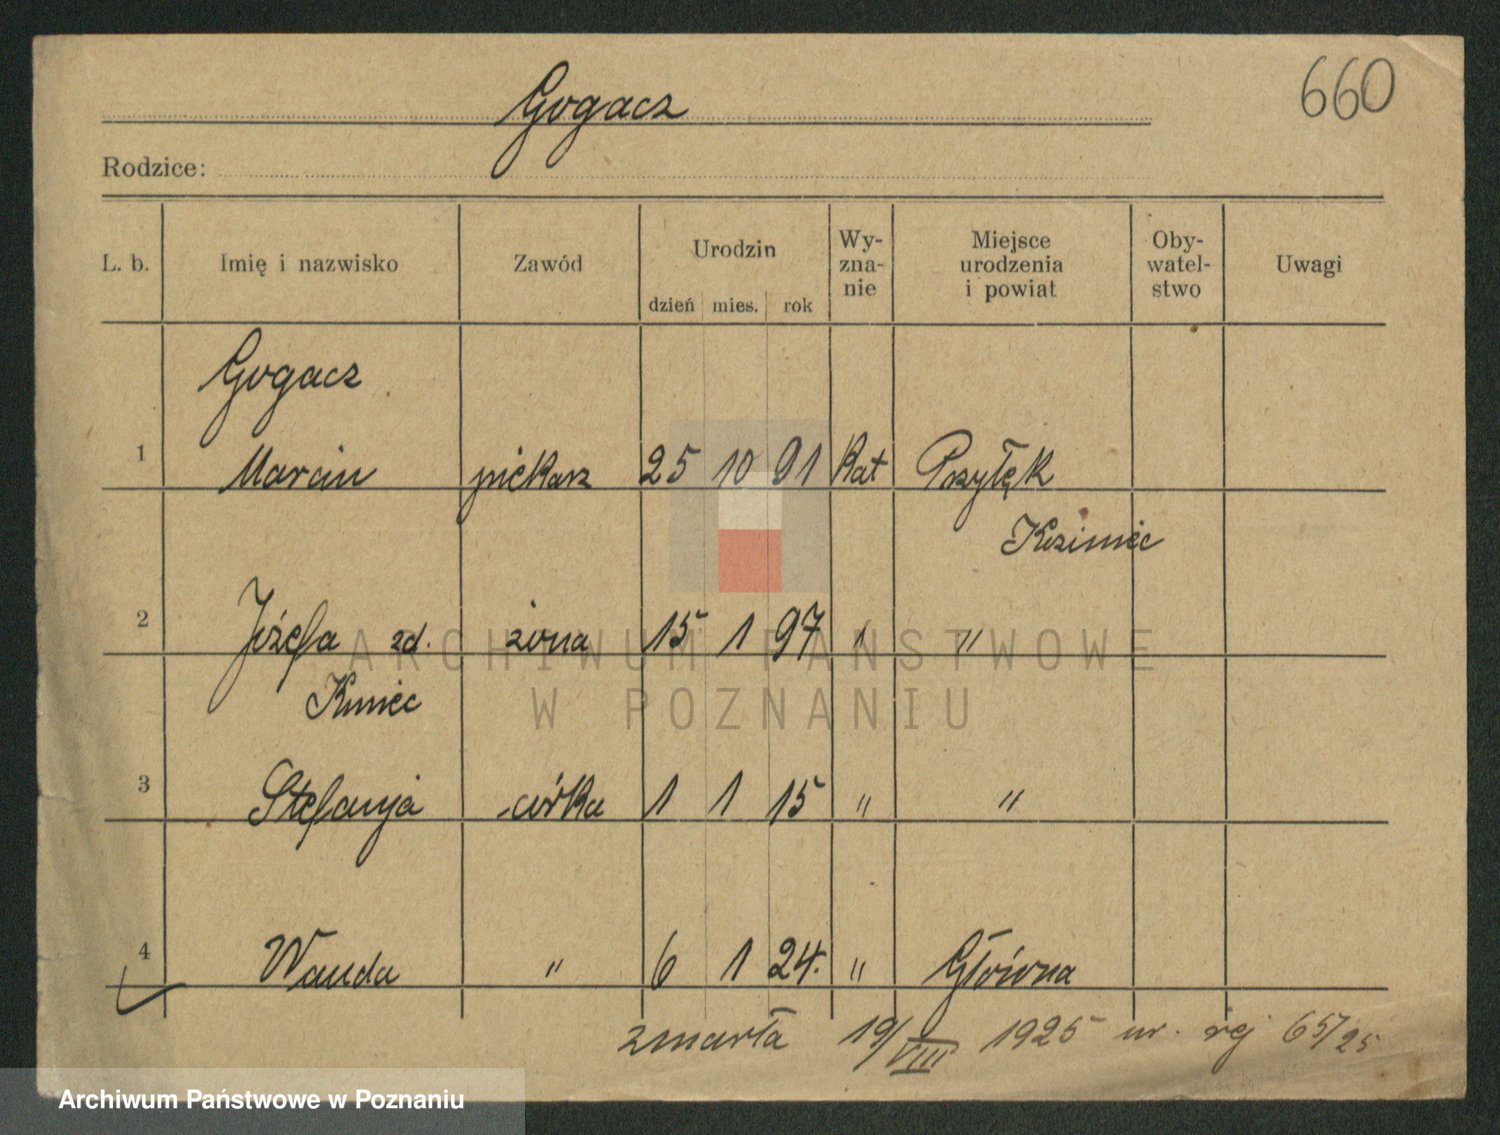 660
Gogacz
Rodzice:
L. b. Imię i nazwisko Zawód Urodzin dzień mies. rok Wy-zna-nie Miejsce urodzenia i powiat Oby-watel-stwo Uwagi
Gogacz
1 Marcin piekarz 25 10 91 Kat Przyłęk
Kozimiec
2 Józefa zd. żona 15 1 97 " "
Kmiec
3 Stefanja córka 1 1 15 " "
4 Wanda " 6 1 24. " Główna
zmarła 19/VIII 1925 nr. rej 65/25
ARCHIWUM PAŃSTWOWE
W POZNANIU
Archiwum Państwowe w Poznaniu